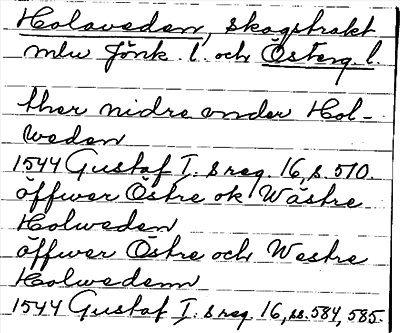 Holaveden, skogstrakt
mlw Jönk. l. och Österg. l.
ther nidre onder Hol-
weden
1544 Gustaf I. s reg. 16, s. 510.
öffwer Östre ok Wästre
Holweden
öffwer Östre och Westre
Holwedenn
1544 Gustaf I. s reg. 16, ss. 584, 585.